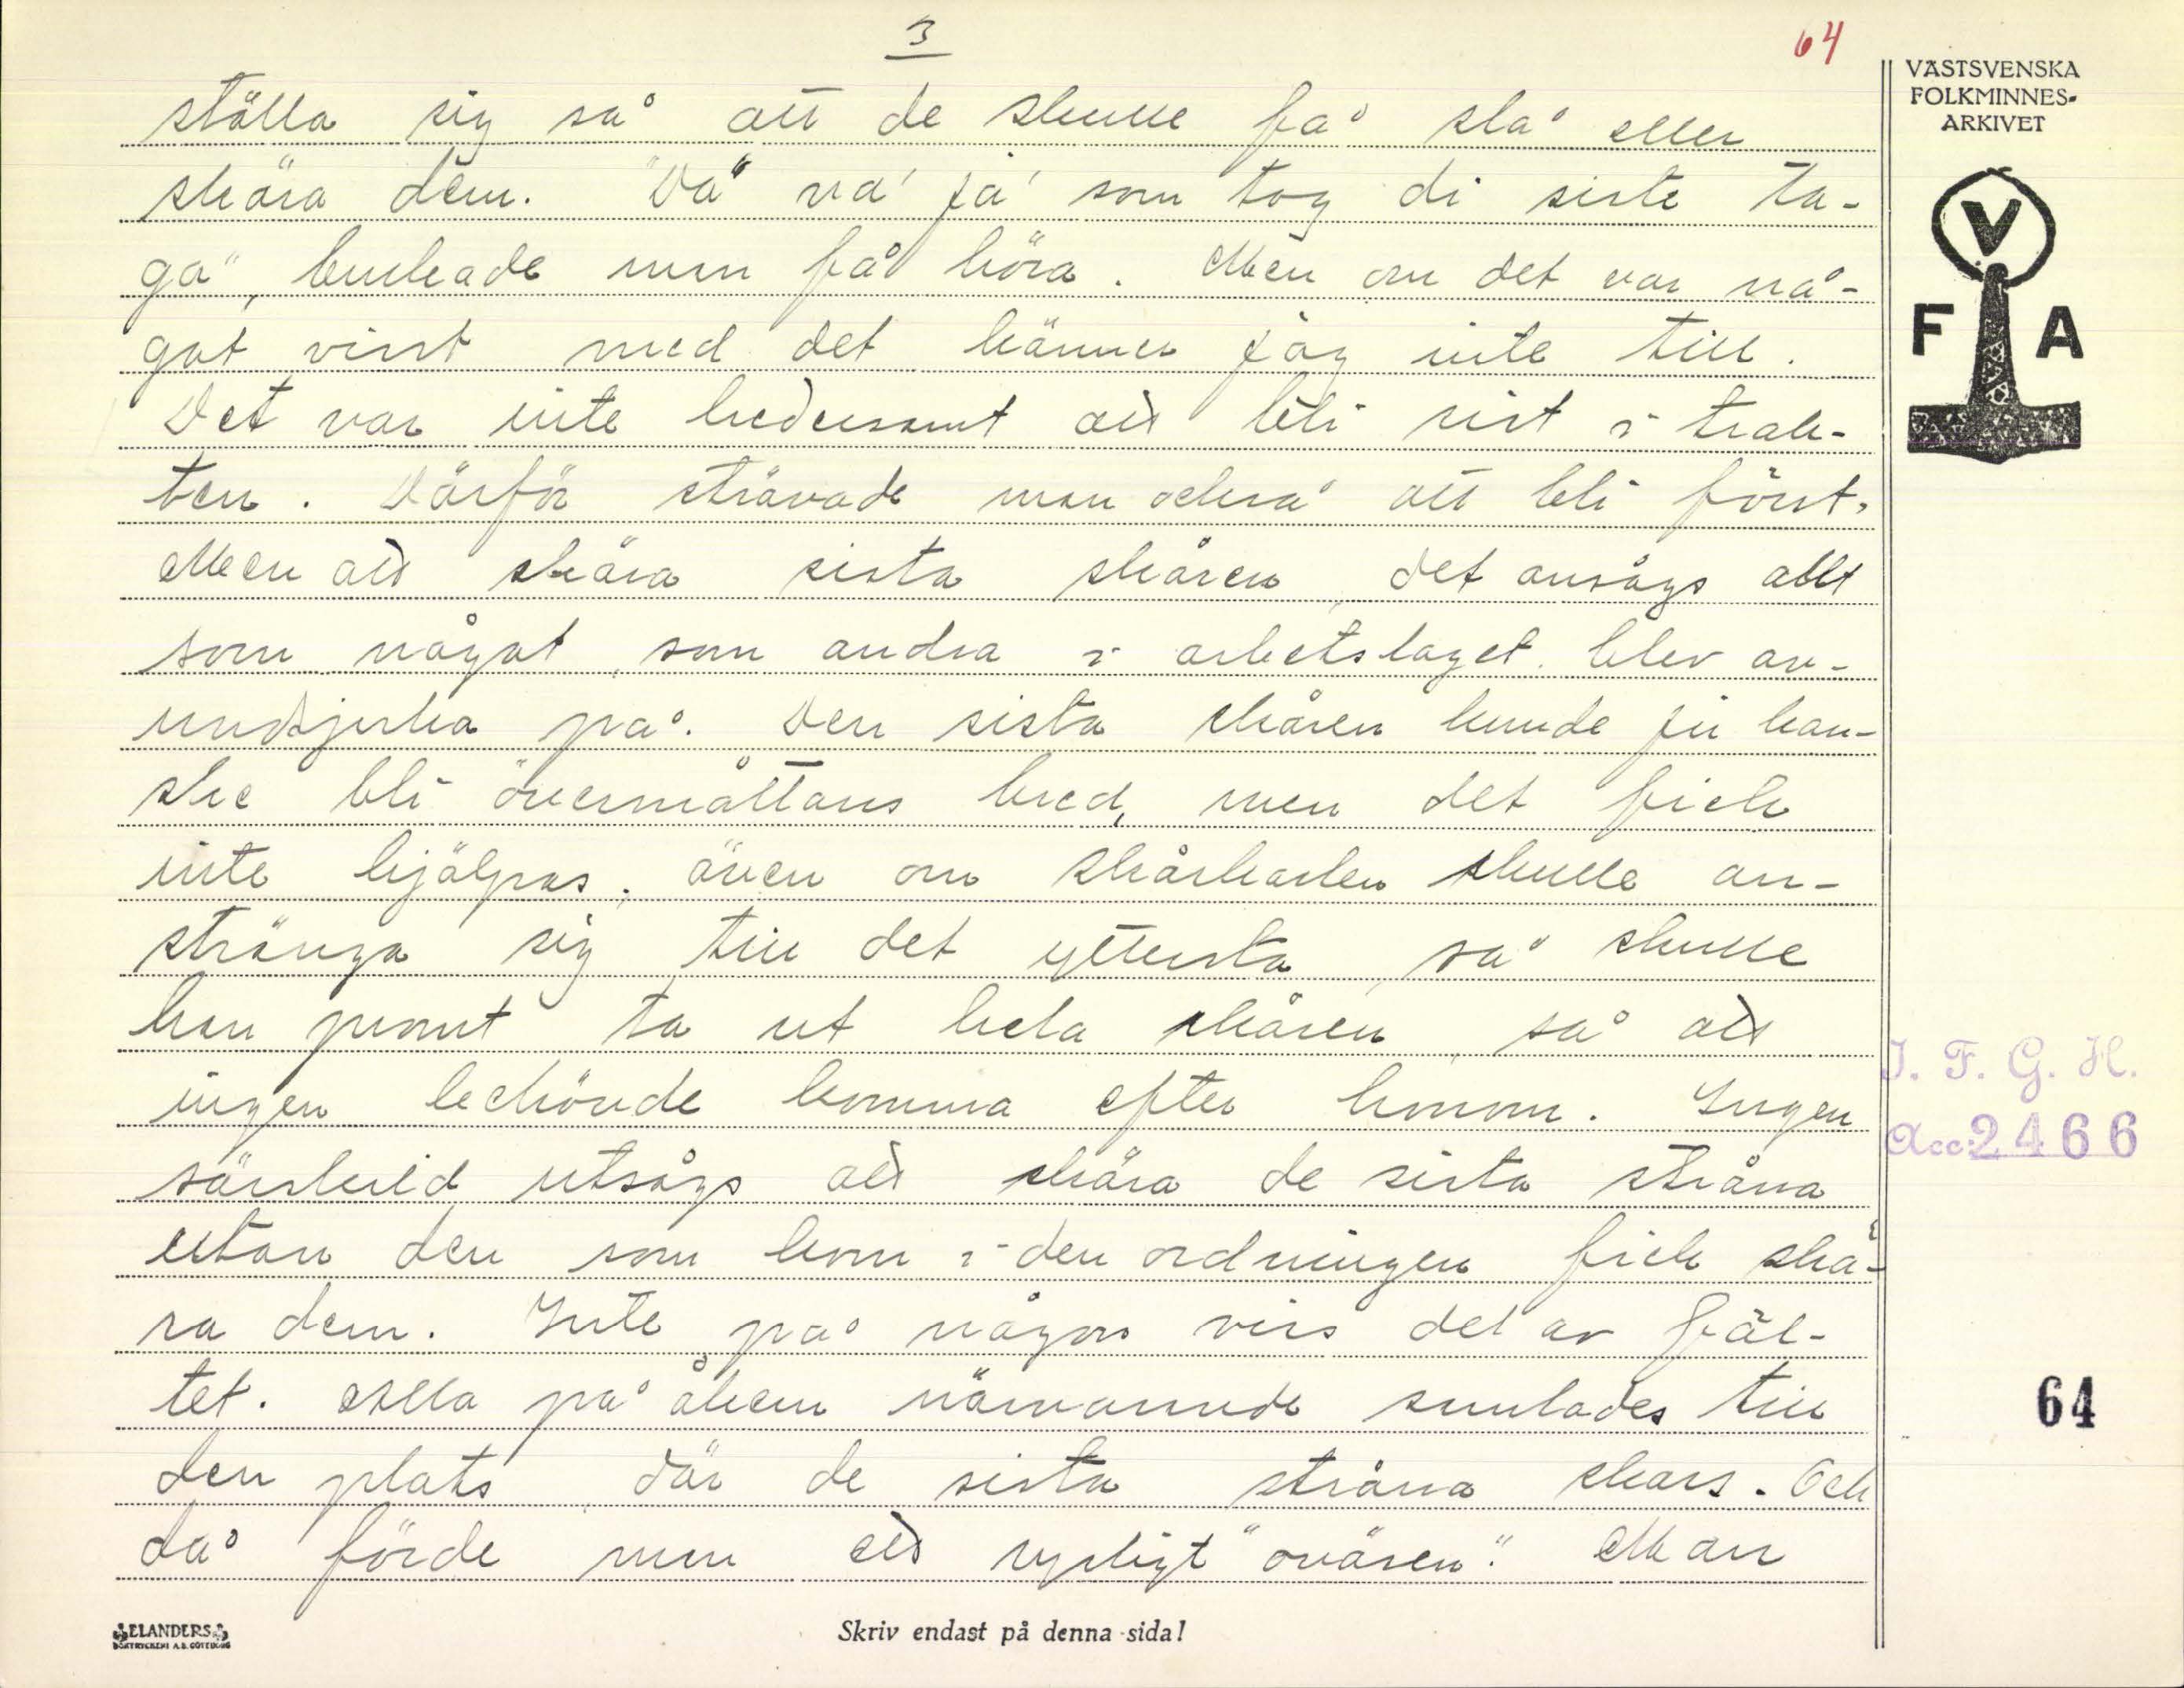 3
64
VÄSTSVENSKA
FOLKMINNES-
ARKIVET
V
F A
ställa sig så att de skulle få slå eller
skära dem. "Dä" va' ja' som tog di siste ta-
ga", brukade man få höra. Men om det var nå-
got visst med det känner jag inte till.
Det var inte hedersamt att bli sist i trak-
ten. Därför strävade man också att bli först.
Men att skära sista skåren, det ansågs allt
som något, som andra i arbetslaget blev av-
undsjuka på. Den sista skåren kunde ju kan-
ske bli övermåttans bred, men det fick
inte hjälpas, även om skårkarlen skulle an-
stränga sig till det yttersta, så skulle
han promt ta ut hela skåren, så att
ingen behövde komma efter honom. Ingen
särskild utsågs att skära de sista stråna
utan den som kom i den ordningen fick skä-
ra dem. Inte på någon viss del av fäl-
tet. Alla på åkern närvarande samlades till
den plats, där de sista stråna skars. Och
då förde man ett rysligt "oväsen". Man
I. F. G. H.
Acc: 2466
64
ELANDERS
BOKTRYCKERI A.B. GÖTEBORG
Skriv endast på denna sida!